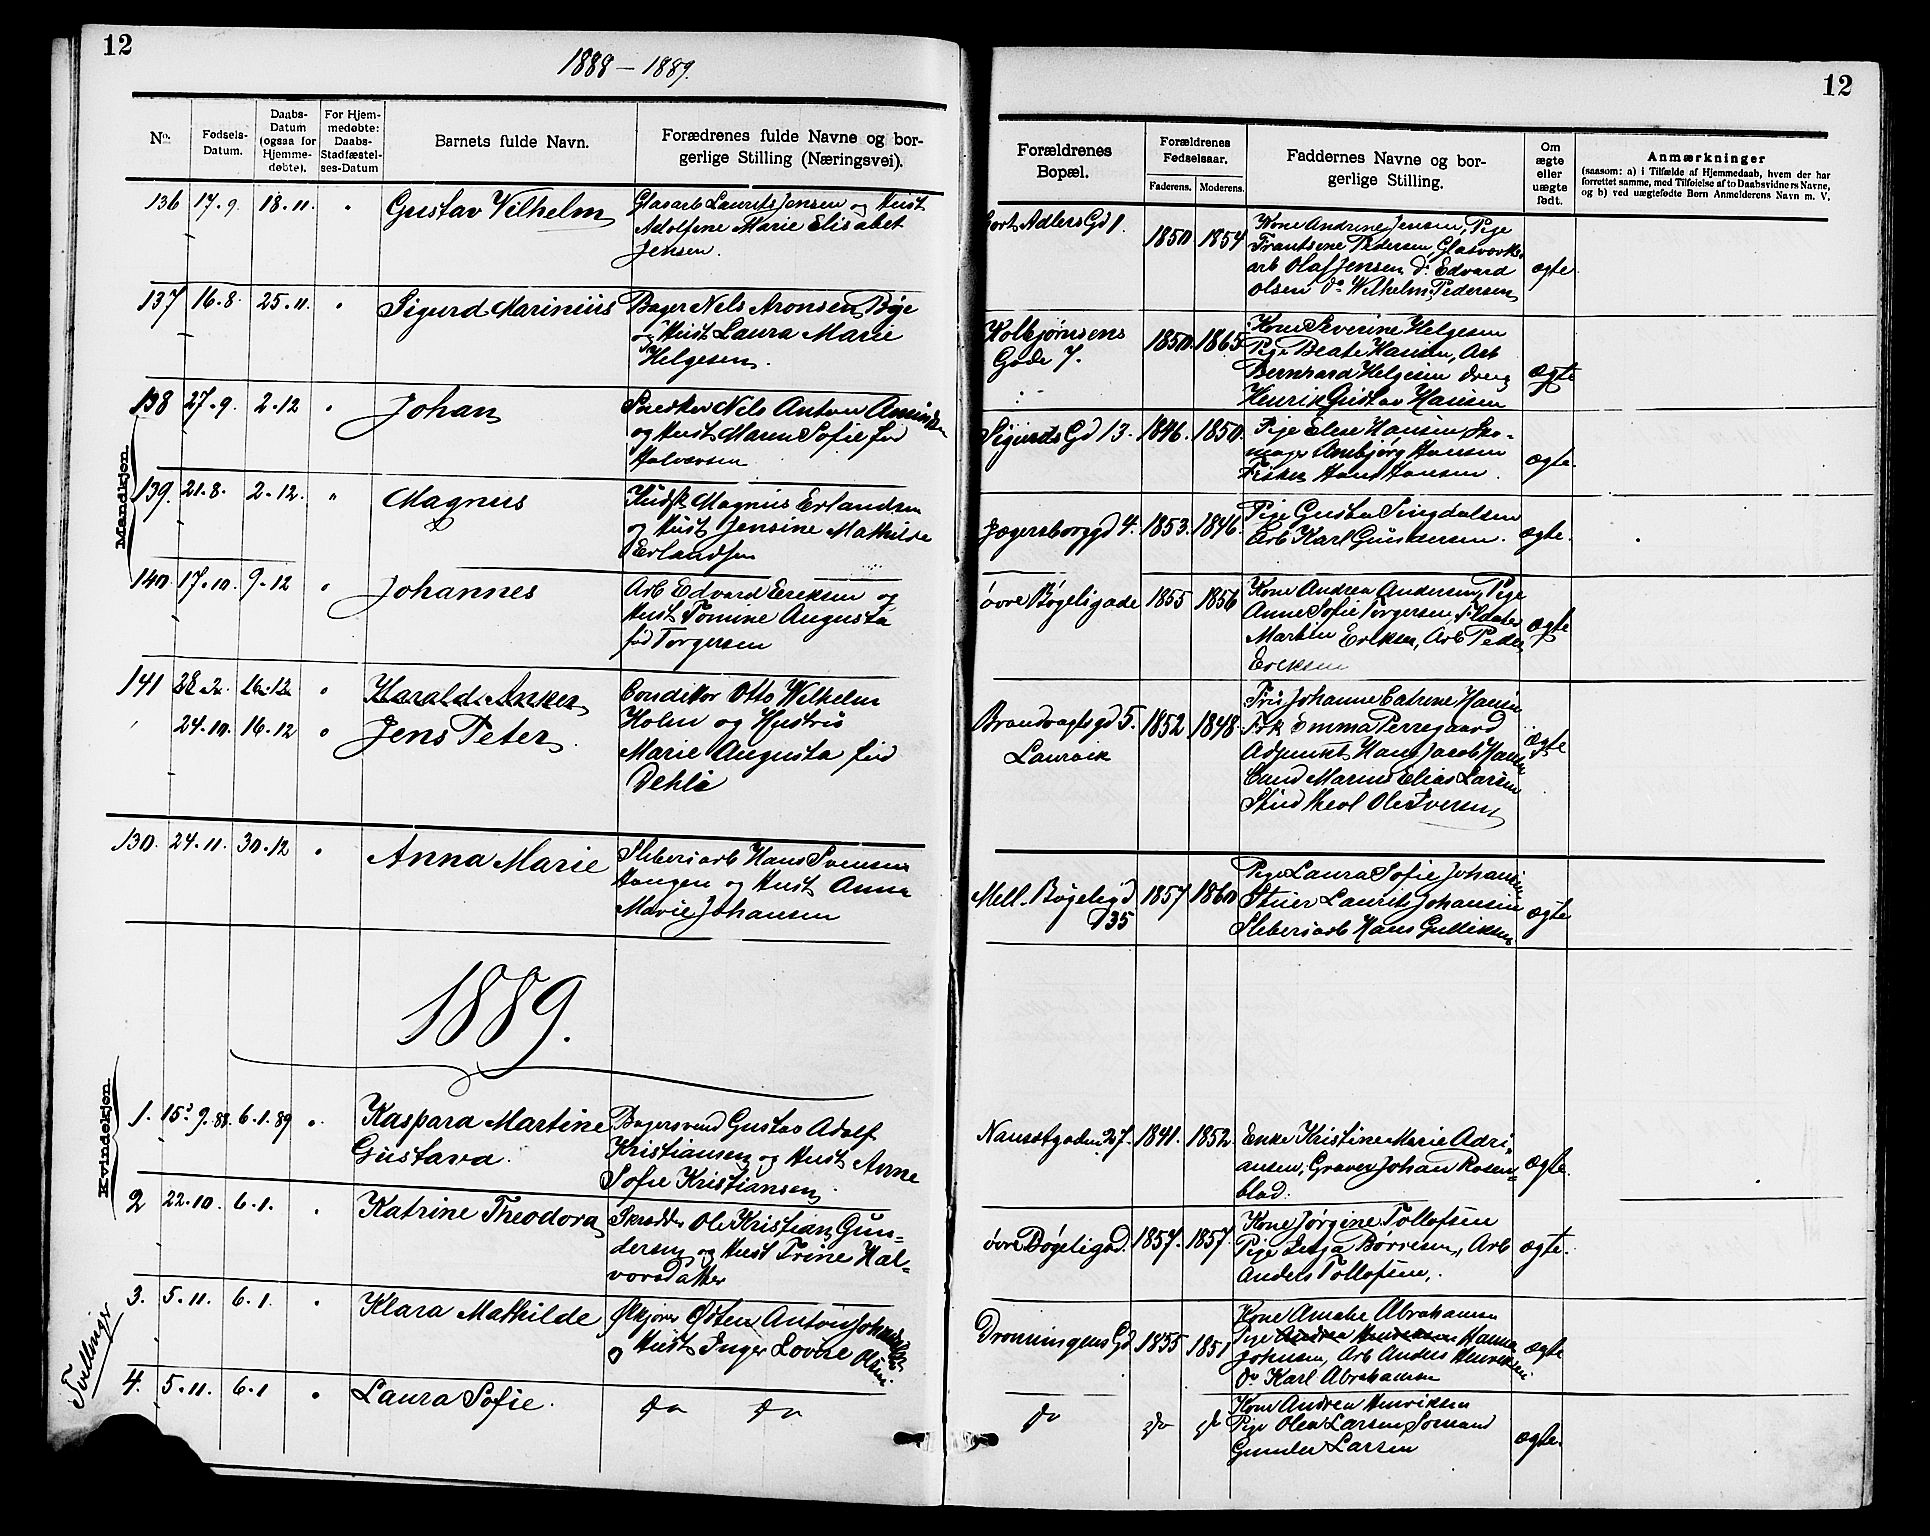 12
1888 – 1889.
No.
Fødsels-
Datum.
Daabs-
Datum
(ogsaa for
Hjemme-
døbte).
For Hjem-
medøbte:
Daabs-
Stadfæstel-
ses-Datum
Barnets fulde Navn.
Forædrenes fulde Navne og bor-
gerlige Stilling (Næringsvei).
Mandkjøn
136 17.9. 18.11. " Gustav Vilhelm
Glasarb Laurits Jensen og Hust
Adolfine Marie Elisabet
Jensen.
137 16.8 25.11. " Sigurd Marinius
Bager Nels Aronsen Bøje
og Hust Laura Marie
Helgesen.
138 27.9. 2.12 " Johan
Snedker Nels Anton
og Hust Maren Sofie fød
Halvorsen
139. 21.8. 2.12. " Magnus
Magnus Erlandsen
og Hust Jensine Mathilde
Erlandsen
140. 17.10. 9.12 " Johannes
Arb Edvard Eriksen og
Hust Tomine Augusta
fød Torgersen
141 16.12 " Harald Anker
24.10. 16.12 " Jens Peter
Conditor Otto Wilhelm
Holm og Hustru
Marie Augusta fød
Dehli
130. 24.11. 30.12 " Anna Marie
Sliberiarb Hans Svensen
Haugen og Hust Anna
Marie Johansen
1889.
Kvindekjøn
1. 15.9.88. 6.1.89 " Kaspara Martine
Gustava.
Bagersvend Gustav Adolf
Kristiansen og Hust Anne
Sofie Kristiansen.
2 22.10. 6.1. " Katrine Theodora
Skrædder Ole Kristian Gun-
dersen og Hust Trine Hal-
vorsdatter
Tvillinger
3. 5.11. 6.1. " Klara Mathilde
Østen Anton
og Hust Inger Lovise Olsen
4. 5.11. 6.1 " Laura Sofie.
do do
12
Forældrenes
Bopæl.
Forældrenes
Fødselsaar.
Faderens. Moderens.
Faddernes Navne og bor-
gerlige Stilling.
Om
ægte
eller
uægte
født.
Anmærkninger
(saasom: a) i Tilfælde af Hjemmedaab, hvem der har
forrettet samme, med Tilføielse af to Daabsvidners Navne,
og b) ved uægtefødte Børn Anmelderens Navn m. V.
Cort Adlers Gd 1. 1850 1854
Kone Andrine Jensen, Pige
Frantsene Pedersen, Glasværks-
arb Olaf Jensen do Edvard
Olsen do Wilhelm Pedersen
ægte.
Kolbjørnsens
Gade 7.
1850. 1865
Kone Severine Helgesen
Pige Beate Hansen, Arb
Bernhard Helgesen dreng
Henrik Gustav Hansen
ægte
Sigurds Gd 13. 1846. 1850.
Pige Elise Hansen, Sko-
mager Ansbjørg Hansen
Fisker Hans Hansen.
ægte.
Jægersborggd 4. 1853. 1846.
Pige Gusta Singdalsen
Arb Karl Gundersen.
ægte.
øvre Bøgeligade 1855 1856
Kone Andrea Andersen, Pige
Anne Sofie Torgersen,
Martin Eriksen, Arb Peder
Eriksen
ægte
Brandvagtsgd 5.
Laurvik
1852 1848
Fru Johanne Catrine Hansen
Frk Emma Perregaard
Adjunkt Hans Jacob Hansen
Cand Marius Elias Larsen
Stud theol Ole Iversen
ægte
Mell. Bøgeligd
35
1857 1860
Pige Laura Sofie Johansen
Laurits Johansen
Sliberiarb Hans Gulliksen
ægte
Nansetgaden 27. 1841. 1852.
Enke Kristine Marie Adri-
ansen, Graver Johan Rosen-
blad.
ægte.
øvre Bøgeligad. 1854. 1857.
Kone Jørgine Tollofsen
Pige Børresen, Arb
Anders Tollofsen,.
ægte.
Dronningens Gd 1855 1851
Kone Amalie Abrahamsen
Pige Andrea Henriksen Hanna
Johnsen, Arb Anders Henriksen
do Karl Abrahamsen
ægte
do do do
Kone Andrea Henriksen
Pige Olea Larsen, Sømand
Gunder Larsen
ægte.